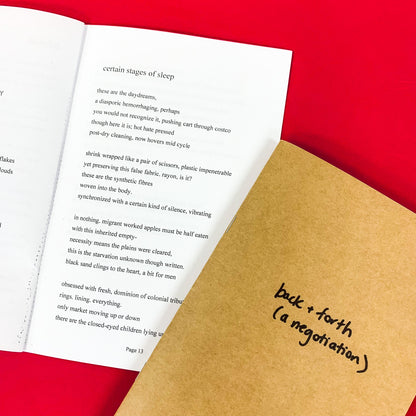 flakes
louds
certain stages of sleep
these are the daydreams,
a diasporic hemorrhaging, perhaps
you would not recognize it, pushing cart through costco
though here it is; hot hate pressed
post-dry cleaning, now hovers mid cycle
shrink wrapped like a pair of scissors, plastic impenetrable
yet preserving this false fabric. rayon, is it?
these are the synthetic fibres
woven into the body.
synchronized with a certain kind of silence, vibrating
in nothing, migrant worked apples must be half eaten
with this inherited empty-
necessity means the plains were cleared,
this is the starvation unknown though written.
black sand clings to the heart, a bit for men
obsessed with fresh, dominion of colonial
rings, lining, everything.
only market moving up or down
there are the closed-eyed children lying
Page 13
back + forth
(a negotiation)